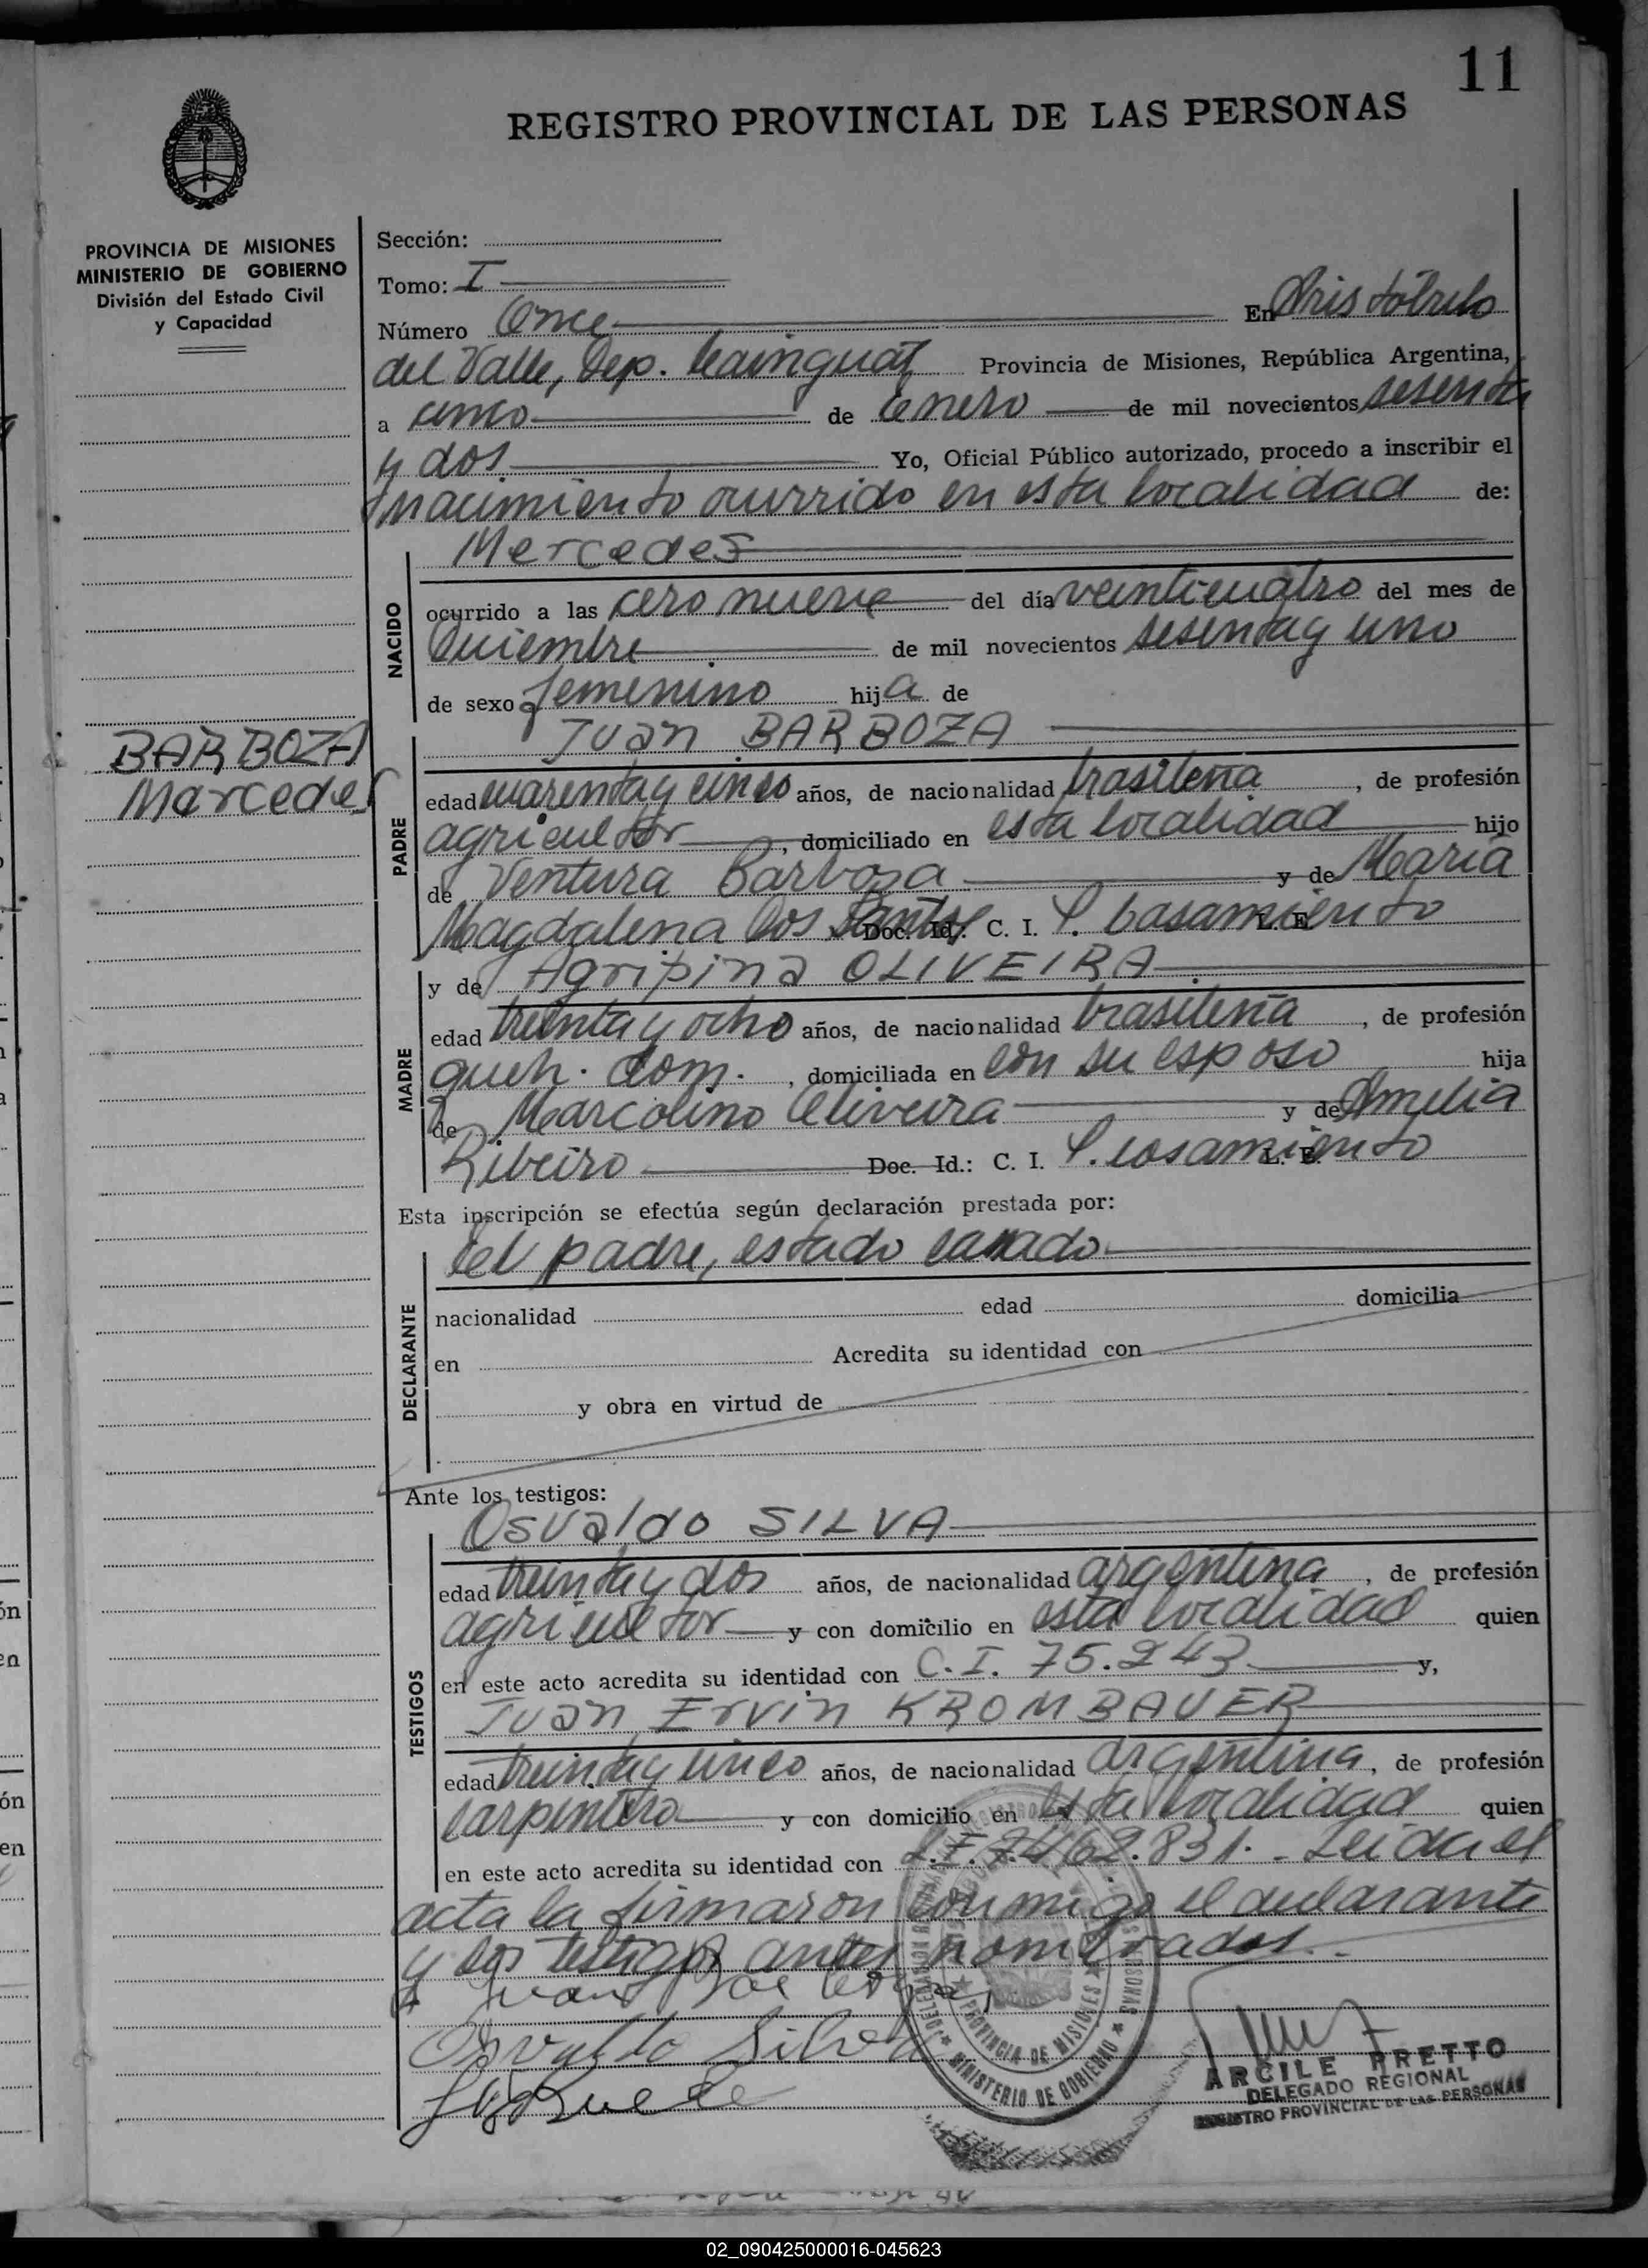 11
REGISTRO PROVINCIAL DE LAS PERSONAS
PROVINCIA DE MISIONES
MINISTERIO DE GOBIERNO
División del Estado Civil
y Capacidad
Sección:
Tomo: I
Número Once En Aristóbulo
del Valle, Dep. Cainguás Provincia de Misiones, República Argentina,
a cinco de Enero de mil novecientos sesenta
y dos Yo, Oficial Público autorizado, procedo a inscribir el
nacimiento ocurrido en esta localidad de:
Mercedes
NACIDO
ocurrido a las cero nueve del día veinticuatro del mes de
Diciembre de mil novecientos sesenta y uno
de sexo femenino hija de
BARBOZA
Mercedes
Juan BARBOZA
PADRE
edad cuarenta y cinco años, de nacionalidad brasileña, de profesión
agricultor, domiciliado en esta localidad hijo
de Ventura Barboza y de María
Magdalena dos Santos Doc. Id.: C. I. L. casamiento L. E.
y de Agripina OLIVEIRA
MADRE
edad treinta y ocho años, de nacionalidad brasileña, de profesión
queh. dom., domiciliada en con su esposo hija
de Marcolino Oliveira y de Amelia
Ribeiro Doc. Id.: C. I. L. casamiento L. E.
Esta inscripción se efectúa según declaración prestada por:
el padre, estado casado
DECLARANTE
nacionalidad edad domicilia
en Acredita su identidad con
y obra en virtud de
Ante los testigos:
Osvaldo SILVA
TESTIGOS
edad treinta y dos años, de nacionalidad argentina, de profesión
agricultor y con domicilio en esta localidad quien
en este acto acredita su identidad con C.I. 75.243 y,
Juan Ervin KROMBAUER
edad treinta y cinco años, de nacionalidad argentina, de profesión
carpintero y con domicilio en esta localidad quien
en este acto acredita su identidad con 7.462.831.- Leída el
acta la firmaron conmigo el declarante
y los testigos antes nombrados.-
Juan
Osvaldo Silva
PROVINCIA DE MISIONES
MINISTERIO DE GOBIERNO
ARCILE PRETTO
DELEGADO REGIONAL
REGISTRO PROVINCIAL DE LAS PERSONAS
02_090425000016-045623